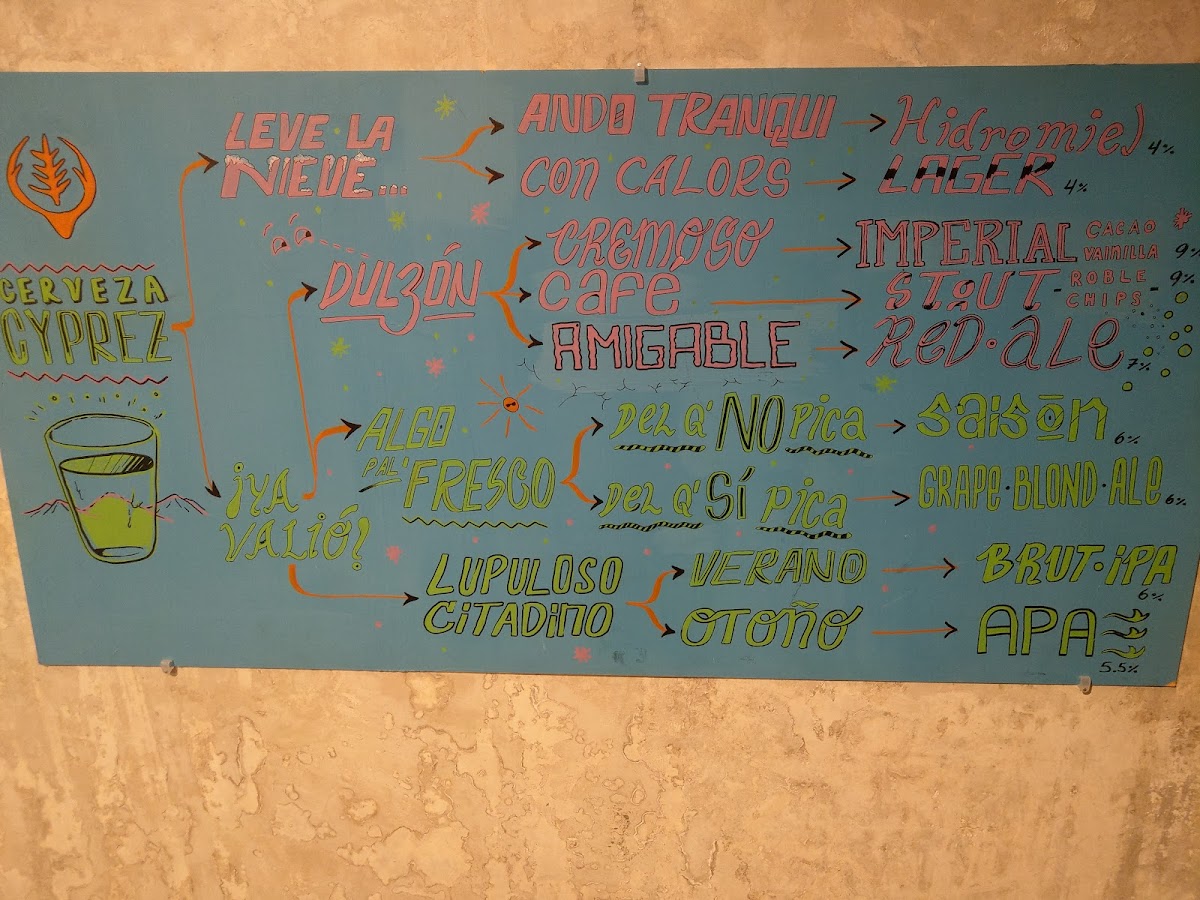 CERVEZA
CYPREZ
LEVE LA
NIEVE...
ANDO TRANQUI
Hidromiel 4%
CON CALORS
LAGER 4%
DULZÓN
CREMOSO
IMPERIAL CACAO VAINILLA 9%
Café
STOUT - ROBLE CHIPS - 9%
AMIGABLE
RED·ALE 7%
¡YA
VALIÓ!
ALGO
PAL' FRESCO
DEL Q' NO PICA
SAISON 6%
DEL Q' SÍ PICA
GRAPE·BLOND·ALE 6%
LUPULOSO
CITADINO
VERANO
BRUT·IPA
6%
OTOÑO
APA
5.5%